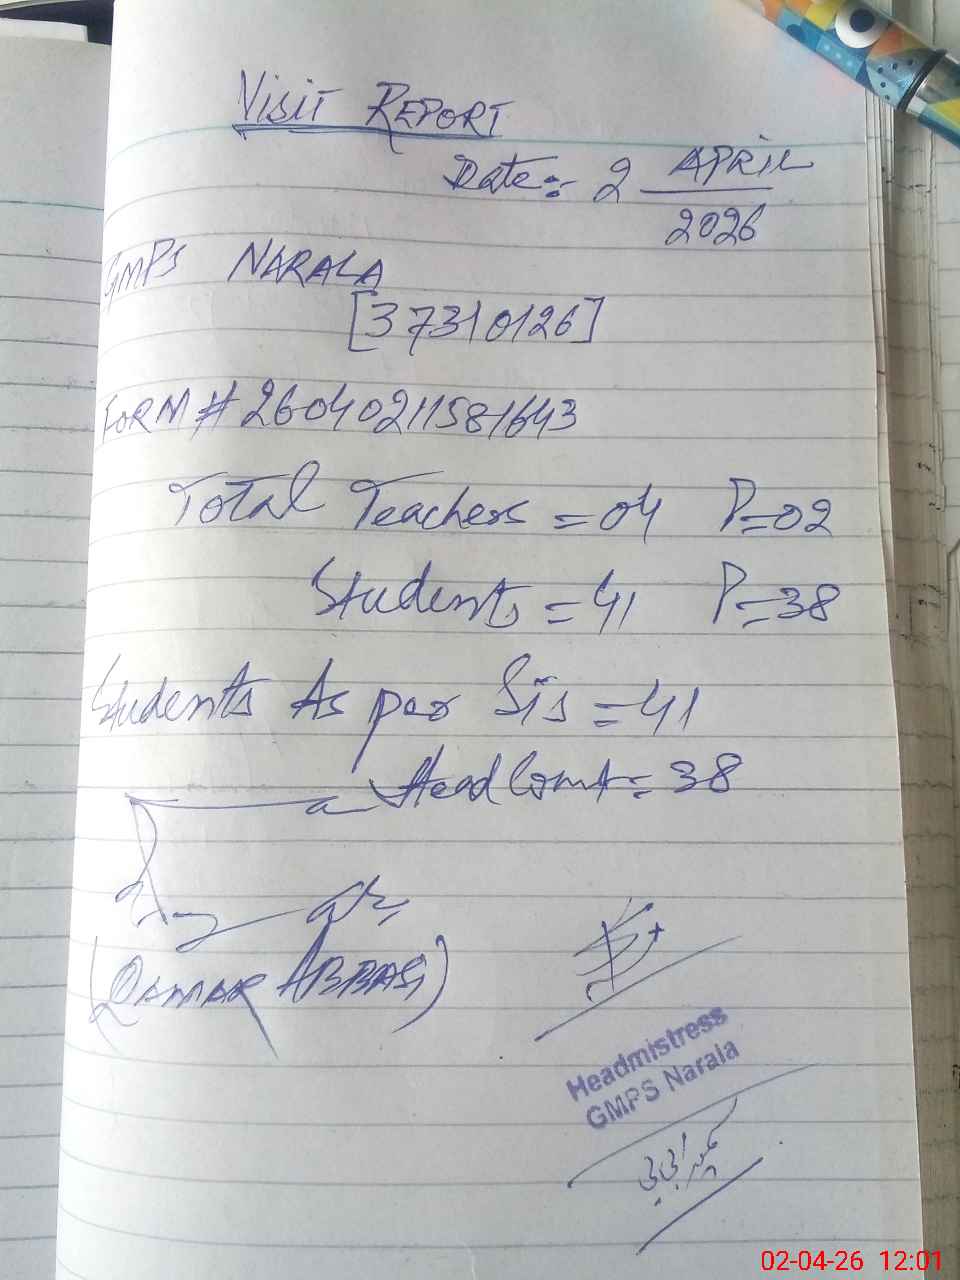 Visit REPORT
Date:- 2 APRIL
2026
GMPS NARALA
[37310126]
FORM # 26040211581643
Total Teachers = 04 P=02
Students = 41 P=38
Students As per Sis = 41
Head Count = 38
(QAMAR ABBAS)
Headmistress
GMPS Narala
02-04-26 12:01